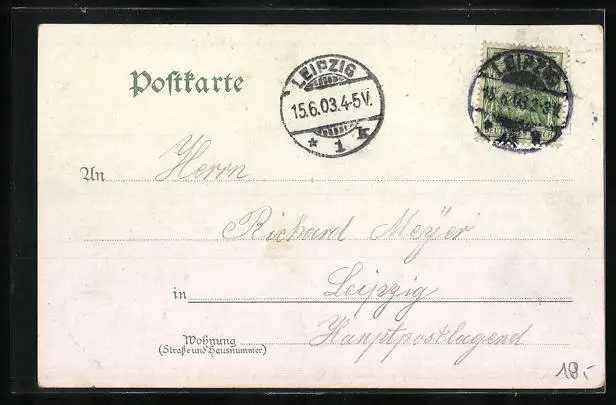 Postkarte
LEIPZIG
15.6.03.4-5V.
* 1 k
LEIPZIG
15.6.03.3-5V.
An Herrn
Richard Meÿer
in Leipzig
Wohnung Hauptpostlagend
(Straße und Hausnummer)
19.-